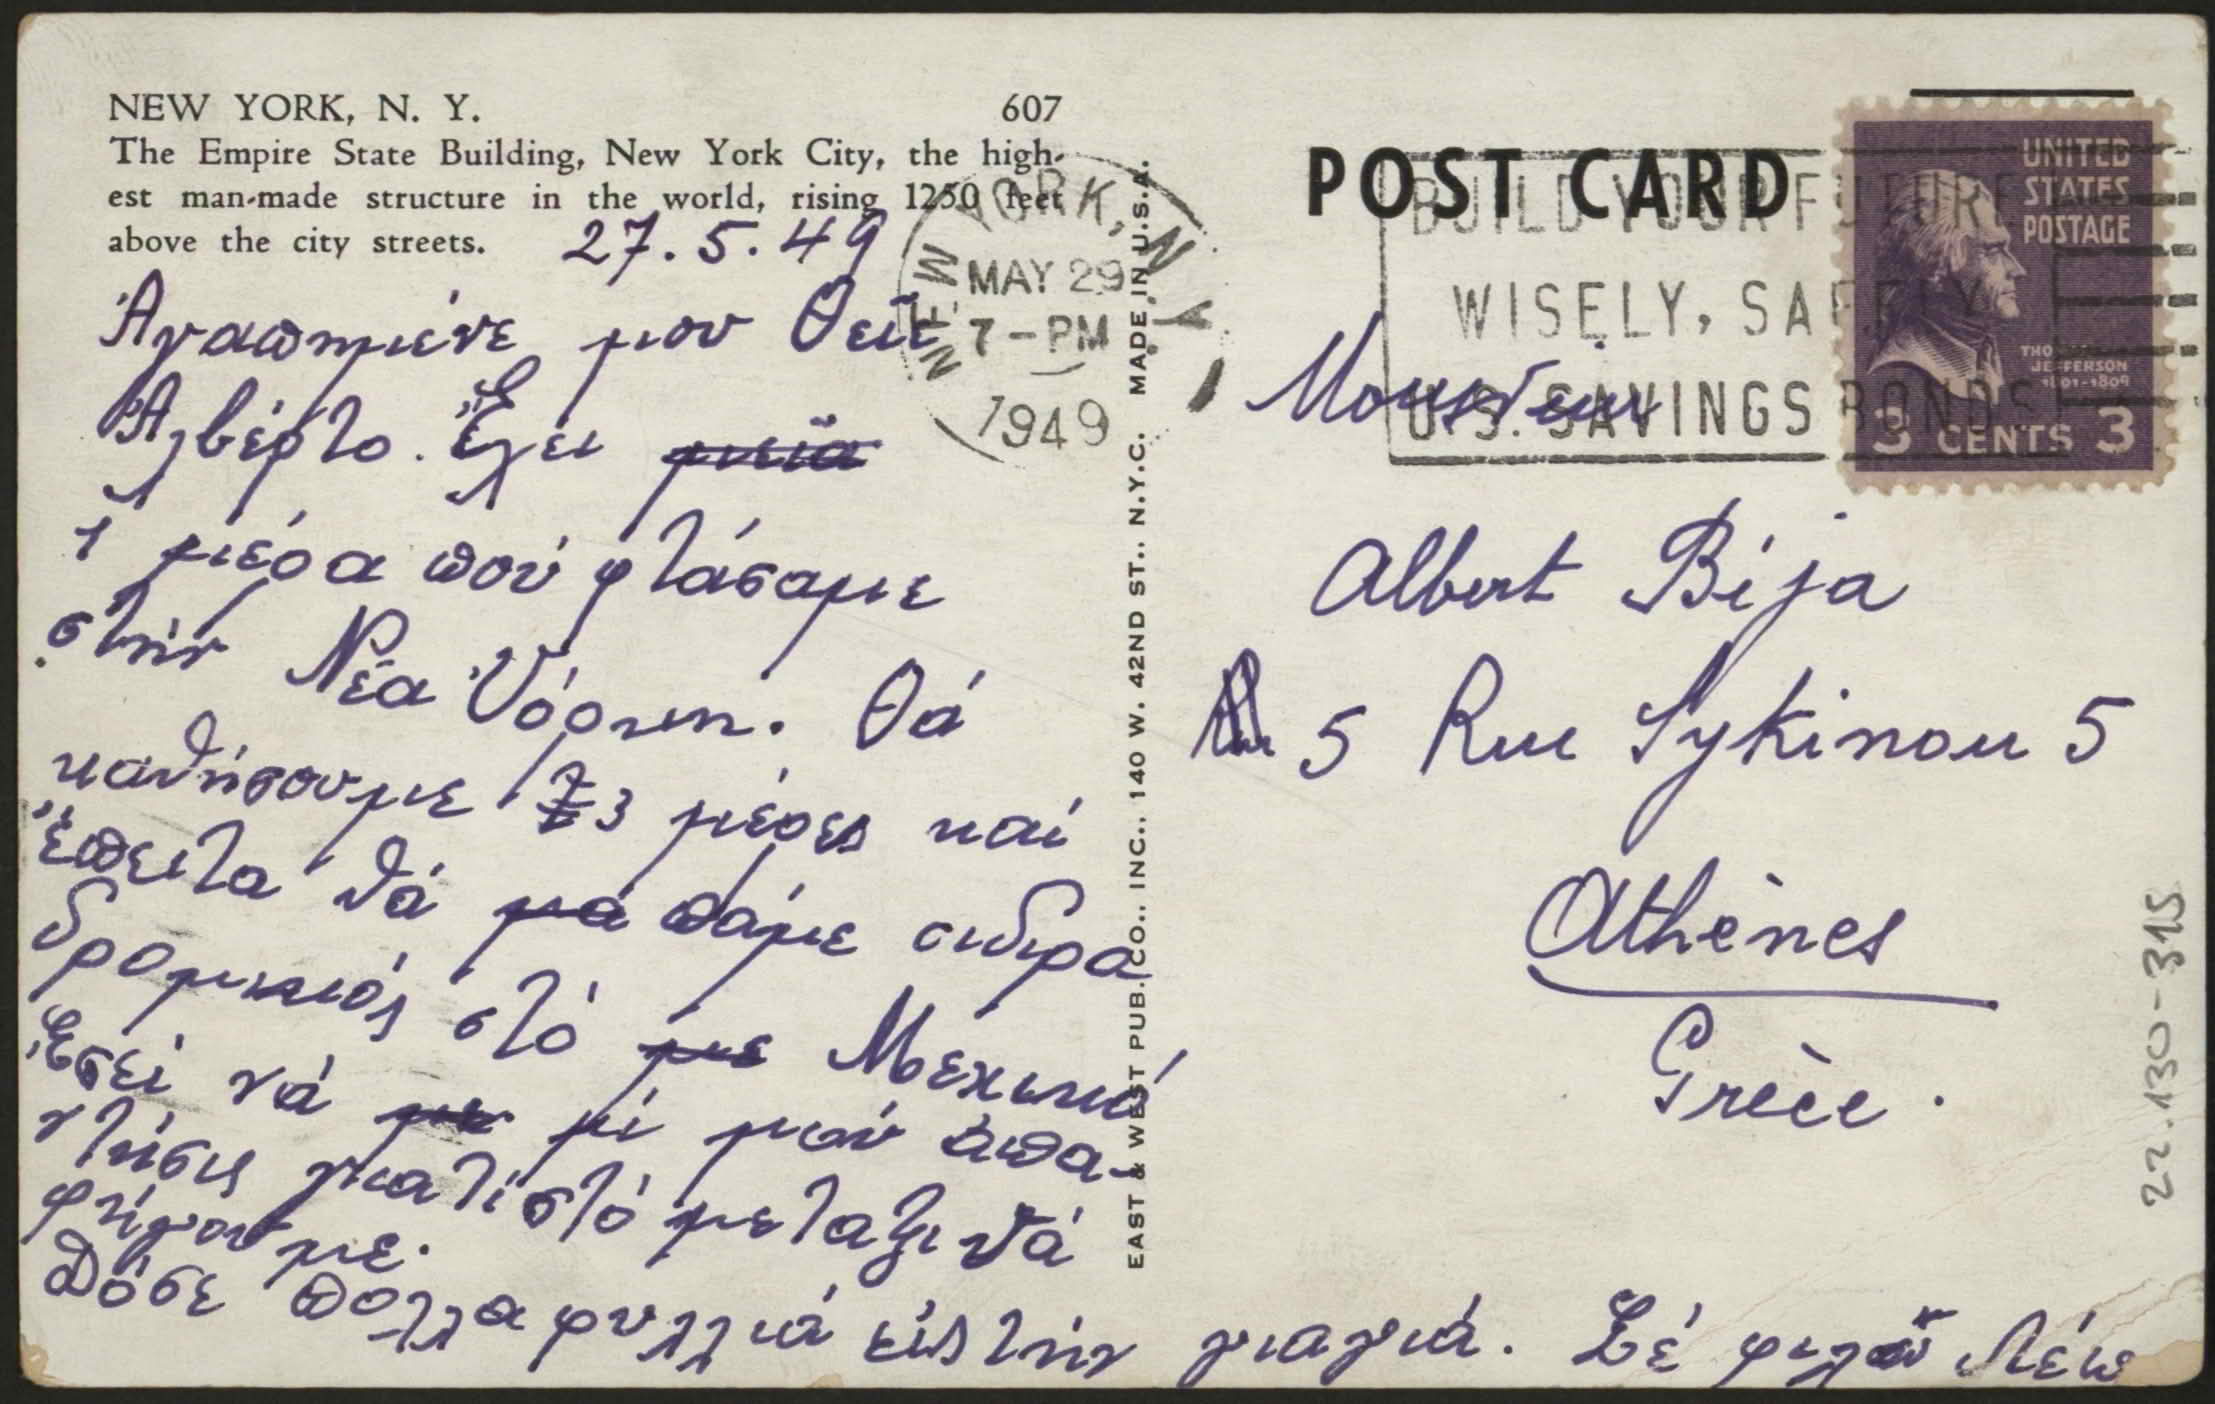 NEW YORK, N. Y. 607
The Empire State Building, New York City, the high-
est man-made structure in the world, rising 1250 feet
above the city streets.
27.5.49
Ἀγαπημένε μου Θεῖε
Ἀλβέρτο. Ἔχει μιεῖα
1 μιέρα πού φτάσαμε
στήν Νέα Ὑόρκη. Θά
καθήσουμε 7 3 μέρες καί
ἔπειτα θά μά πάμε σιδιρα
δρομικιός στό με Μεχικό
Ἐσεί νά με μί μού ἀπα-
ντήσις γιατί στό μεταξι θά
φύγουμε.
Δόσε πολλα φυλλιά εἰς τήν γιαγιά. Σέ φιλῶ Λέω
NEW YORK, N.Y.
MAY 29
7-PM
1949
EAST & WEST PUB. CO., INC., 140 W. 42ND ST., N.Y.C. MADE IN U.S.A.
POST CARD
BUILD YOUR FUTURE
WISELY, SAFELY
U.S. SAVINGS BONDS
UNITED
STATES
POSTAGE
THOMAS JEFFERSON
1801-1809
3 CENTS 3
Monsieur
Albert Bija
5 Rue Sykinou 5
Athènes
Grèce.
22.130-315